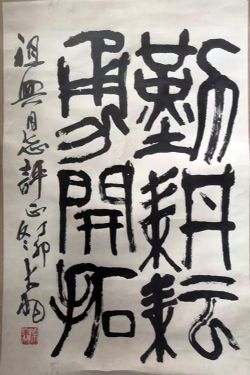 勤耕耘
勇開拓
祖興同志評正
丁卯冬